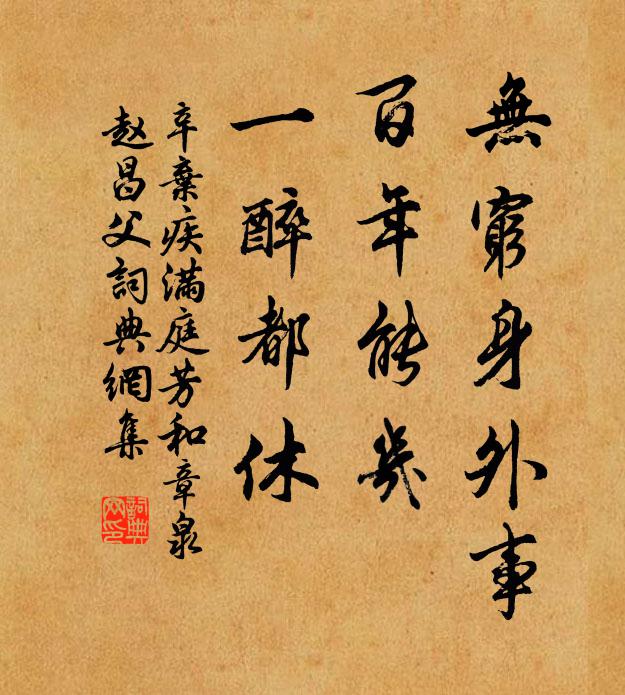 無窮身外事
百年能幾
一醉都休
辛棄疾满庭芳和章泉
赵昌父詞典網集
詞典网印